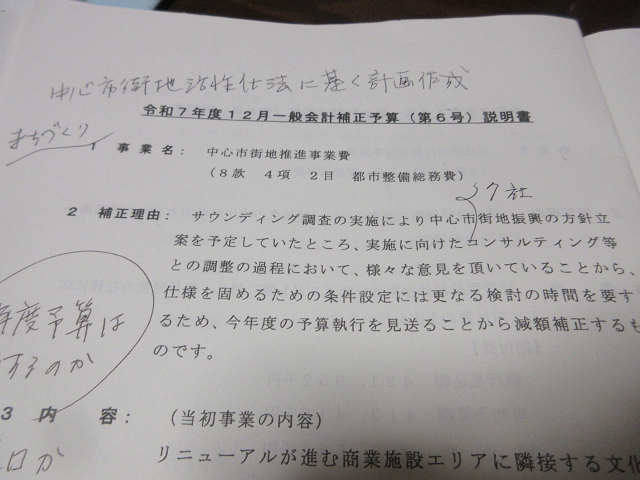 中心市街地活性化法に基く計画作成
令和７年度１２月一般会計補正予算（第６号）説明書
まちづくり
1 事業名： 中心市街地推進事業費
（８款 ４項 ２目 都市整備総務費）
ク社
２ 補正理由： サウンディング調査の実施により中心市街地振興の方針立
案を予定していたところ、実施に向けたコンサルティング等
との調整の過程において、様々な意見を頂いていることから、
仕様を固めるための条件設定には更なる検討の時間を要す
るため、今年度の予算執行を見送ることから減額補正するも
のです。
年度予算は
するのか
３ 内容： （当初事業の内容）
リニューアルが進む商業施設エリアに隣接する文化